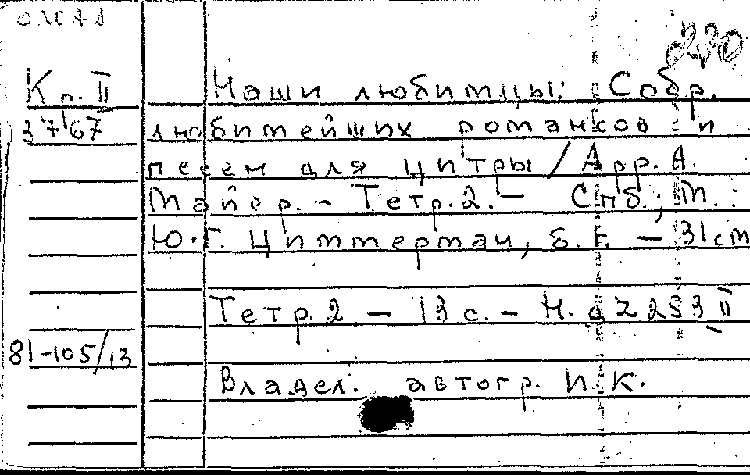 220
Кп. II Наши любимцы: Собр.
37167 любимейших романсов и
песен для цитры / Арр. А.
Майер. - Тетр. 2. - Спб.; М.:
Ю.Г. Циммерман, б.г. - 31 cm
Тетр. 2 - 13 с. - Н.д Z 253 II
81-105/13
Владел. автогр. И.К.